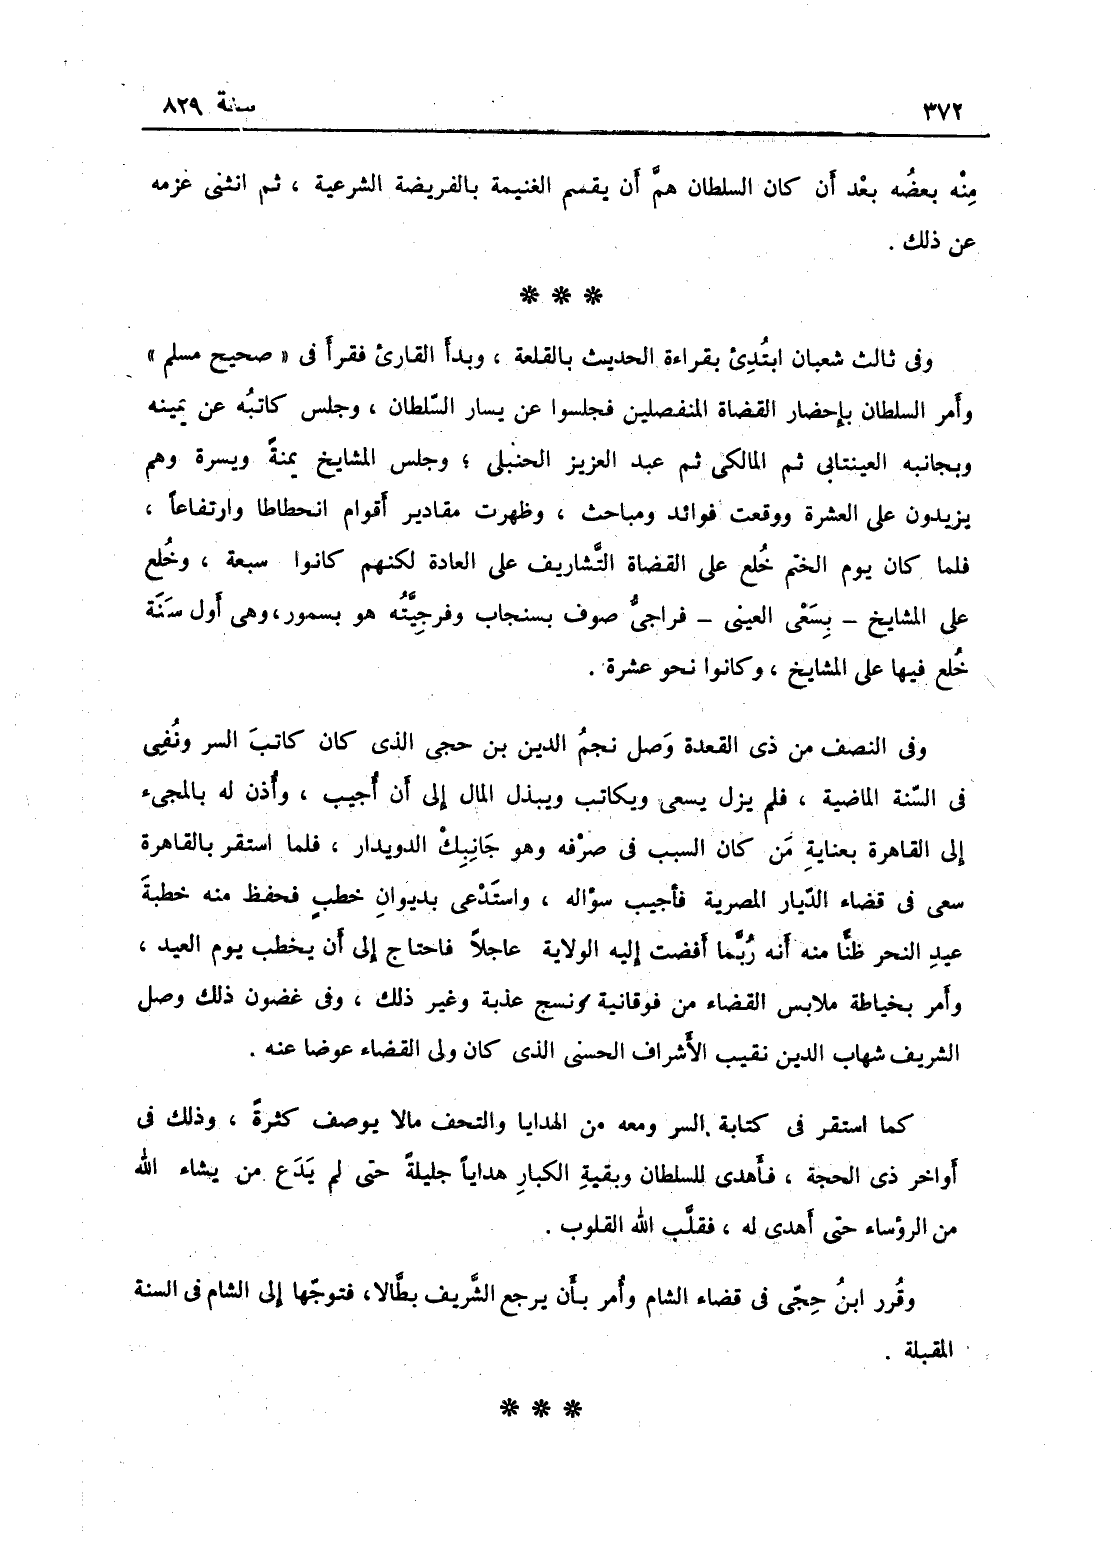 ٣٧٢
سنة ٨٢٩
مِنْه بعضُه بعْد أَن كان السلطان همَّ أَن يقسم الغنيمة بالفريضة الشرعية ، ثم انثنى عزمه
عن ذلك .
* * *
وفى ثالث شعبان ابتُدِئ بقراءة الحديث بالقلعة ، وبدأَ القارئ فقرأَ فى « صحيح مسلم »
وأَمر السلطان بإحضار القضاة المنفصلين فجلسوا عن يسار السّلطان ، وجلس كاتبُه عن يمينه
وبجانبه العينتابى ثم المالكى ثم عبد العزيز الحنبلى ؛ وجلس المشايخ يمنةً ويسرة وهم
يزيدون على العشرة ووقعت فوائد ومباحث ، وظهرت مقادير أَقوام انحطاطا وارتفاعاً ،
فلما كان يوم الختم خُلع على القضاة التَّشاريف على العادة لكنهم كانوا سبعة ، وخُلع
على المشايخ – بِسَعْى العينى – فراجىُّ صوف بسنجاب وفرجيَّتُه هو بسمور، وهى أَول سَنَة
خُلع فيها على المشايخ ، وكانوا نحو عشرة .
وفى النصف من ذى القعدة وَصل نجمُ الدين بن حجى الذى كان كاتبَ السر ونُفِى
فى السّنة الماضية ، فلم يزل يسعى ويكاتب ويبذل المال إلى أَن أُجيب ، وأُذن له بالمجىء
إلى القاهرة بعنايةِ مَن كان السبب فى صرْفه وهو جَانِبِكْ الدويدار ، فلما استقر بالقاهرة
سعى فى قضاء الدّيار المصرية فأجيب سؤاله ، واستَدْعى بديوانِ خطبٍ فحفظ منه خطبةَ
عيدِ النحر ظنًّا منه أَنه رُبَّما أَفضت إليه الولاية عاجلاً فاحتاج إلى أَن يخطب يوم العيد ،
وأَمر بخياطة ملابس القضاء من فوقانية ونسج عذبة وغير ذلك ، وفى غضون ذلك وصل
الشريف شهاب الدين نقيب الأَشراف الحسنى الذى كان ولى القضاء عوضا عنه .
كما استقر فى كتابة السر ومعه من الهدايا والتحف مالا يوصف كثرةً ، وذلك فى
أَواخر ذى الحجة ، فأَهدى للسلطان وبقيةِ الكبارِ هداياً جليلةً حتى لم يَدَع من يشاء الله
من الرؤساء حتى أَهدى له ، فقلَّب الله القلوب .
وقُرر ابنُ حِجّى فى قضاء الشام وأُمر بأَن يرجع الشَّريف بطَّالا، فتوجّها إلى الشام فى السنة
المقبلة .
* * *